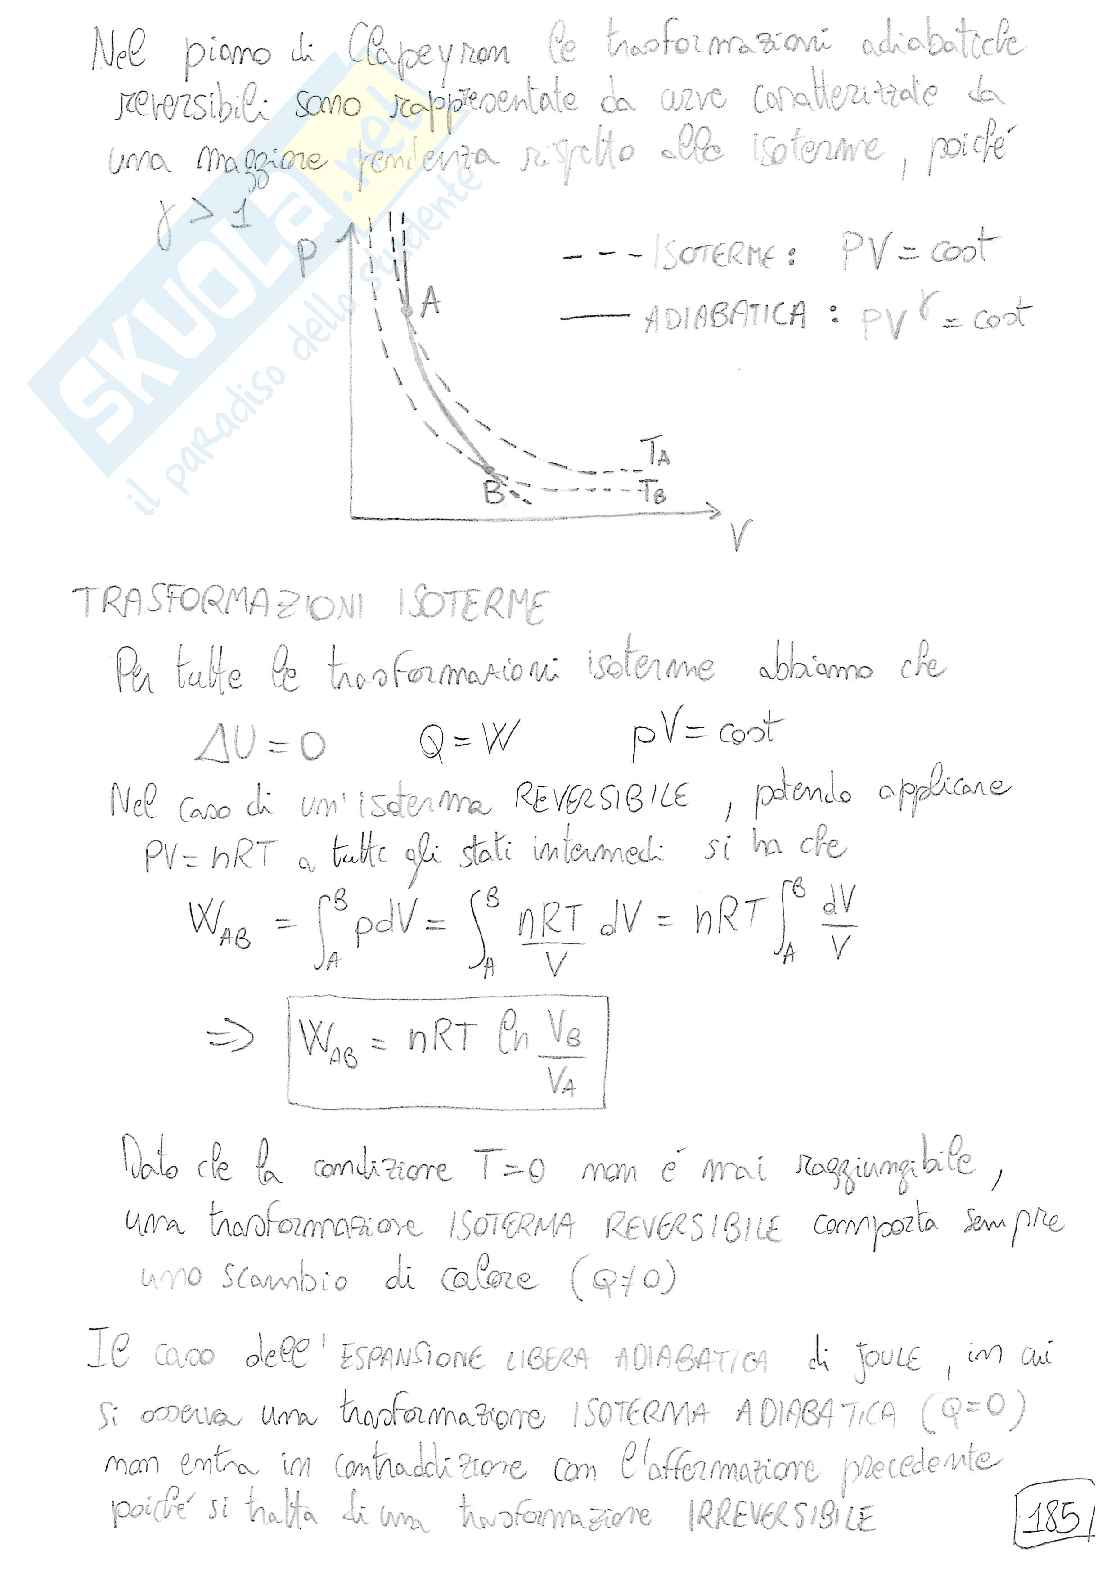 Nel piano di Clapeyron le trasformazioni adiabatiche
reversibili sono rappresentate da curve caratterizzate da
una maggiore pendenza rispetto alle isoterme, poiché
γ > 1
P
--- ISOTERME: PV = cost
A
—— ADIABATICA: PV^γ = cost
T_A
B
T_B
V
SKUOLA.net
il paradiso dello studente
TRASFORMAZIONI ISOTERME
Per tutte le trasformazioni isoterme abbiamo che
ΔU = 0 Q = W pV = cost
Nel caso di un'isoterma REVERSIBILE, potendo applicare
PV = nRT a tutti gli stati intermedi si ha che
W_AB = ∫_A^B pdV = ∫_A^B nRT/V dV = nRT ∫_A^B dV/V
⇒ W_AB = nRT ln V_B/V_A
Dato che la condizione T=0 non é mai raggiungibile,
una trasformazione ISOTERMA REVERSIBILE comporta sempre
uno scambio di calore (Q≠0)
Il caso dell'ESPANSIONE LIBERA ADIABATICA di JOULE, in cui
si osserva una trasformazione ISOTERMA ADIABATICA (Q=0)
non entra in contraddizione con l'affermazione precedente
poiché si tratta di una trasformazione IRREVERSIBILE
185